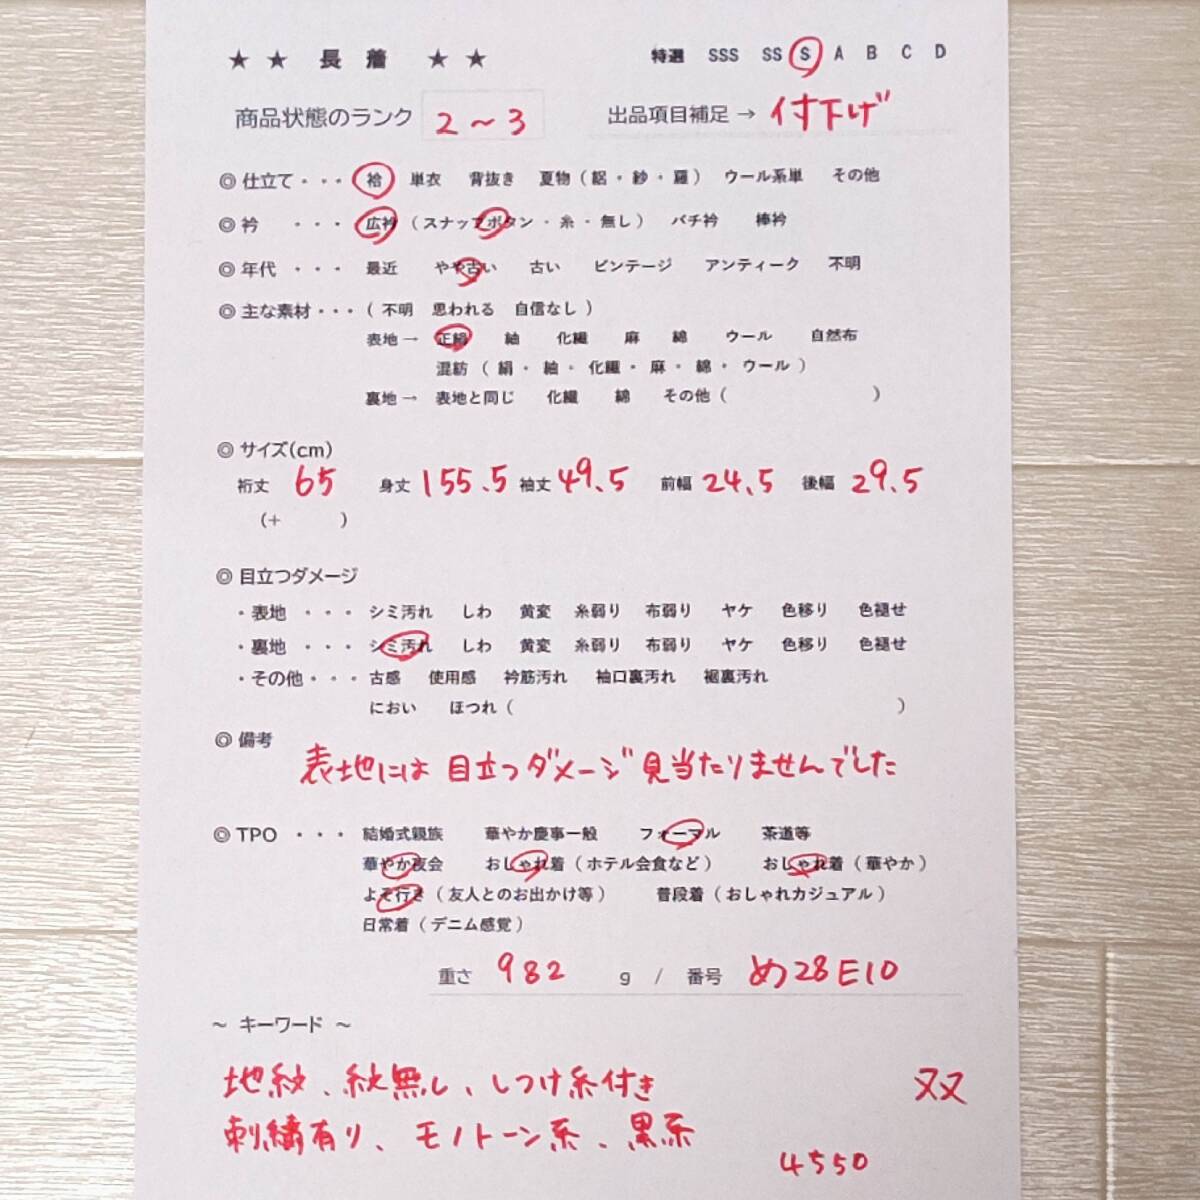 ★ ★ 長着 ★ ★ 特選 SSS SS S A B C D
商品状態のランク 2～3 出品項目補足 → 付下げ
◎ 仕立て・・・ 袷 単衣 背抜き 夏物（絽・紗・羅） ウール系単 その他
◎ 衿 ・・・ 広衿（スナップボタン・糸・無し） バチ衿 棒衿
◎ 年代 ・・・ 最近 やや古い 古い ビンテージ アンティーク 不明
◎ 主な素材・・・（不明 思われる 自信なし）
表地→ 正絹 紬 化繊 麻 綿 ウール 自然布
混紡（絹・紬・化繊・麻・綿・ウール）
裏地→ 表地と同じ 化繊 綿 その他（ ）
◎ サイズ(cm)
裄丈 65 身丈 155.5 袖丈 49.5 前幅 24.5 後幅 29.5
（+ ）
◎ 目立つダメージ
・表地 ・・・ シミ汚れ しわ 黄変 糸弱り 布弱り ヤケ 色移り 色褪せ
・裏地 ・・・ シミ汚れ しわ 黄変 糸弱り 布弱り ヤケ 色移り 色褪せ
・その他・・・ 古感 使用感 衿筋汚れ 袖口裏汚れ 裾裏汚れ
におい ほつれ（ ）
◎ 備考
表地には目立つダメージ見当たりませんでした
◎ TPO ・・・ 結婚式親族 華やか慶事一般 フォーマル 茶道等
華やか夜会 おしゃれ着（ホテル会食など） おしゃれ着（華やか）
よそ行き（友人とのお出かけ等） 普段着（おしゃれカジュアル）
日常着（デニム感覚）
重さ 982 g / 番号 め28E10
～ キーワード ～
地紋、紋無し、しつけ糸付き
刺繍有り、モノトーン系、黒系
ヌヌ
4550